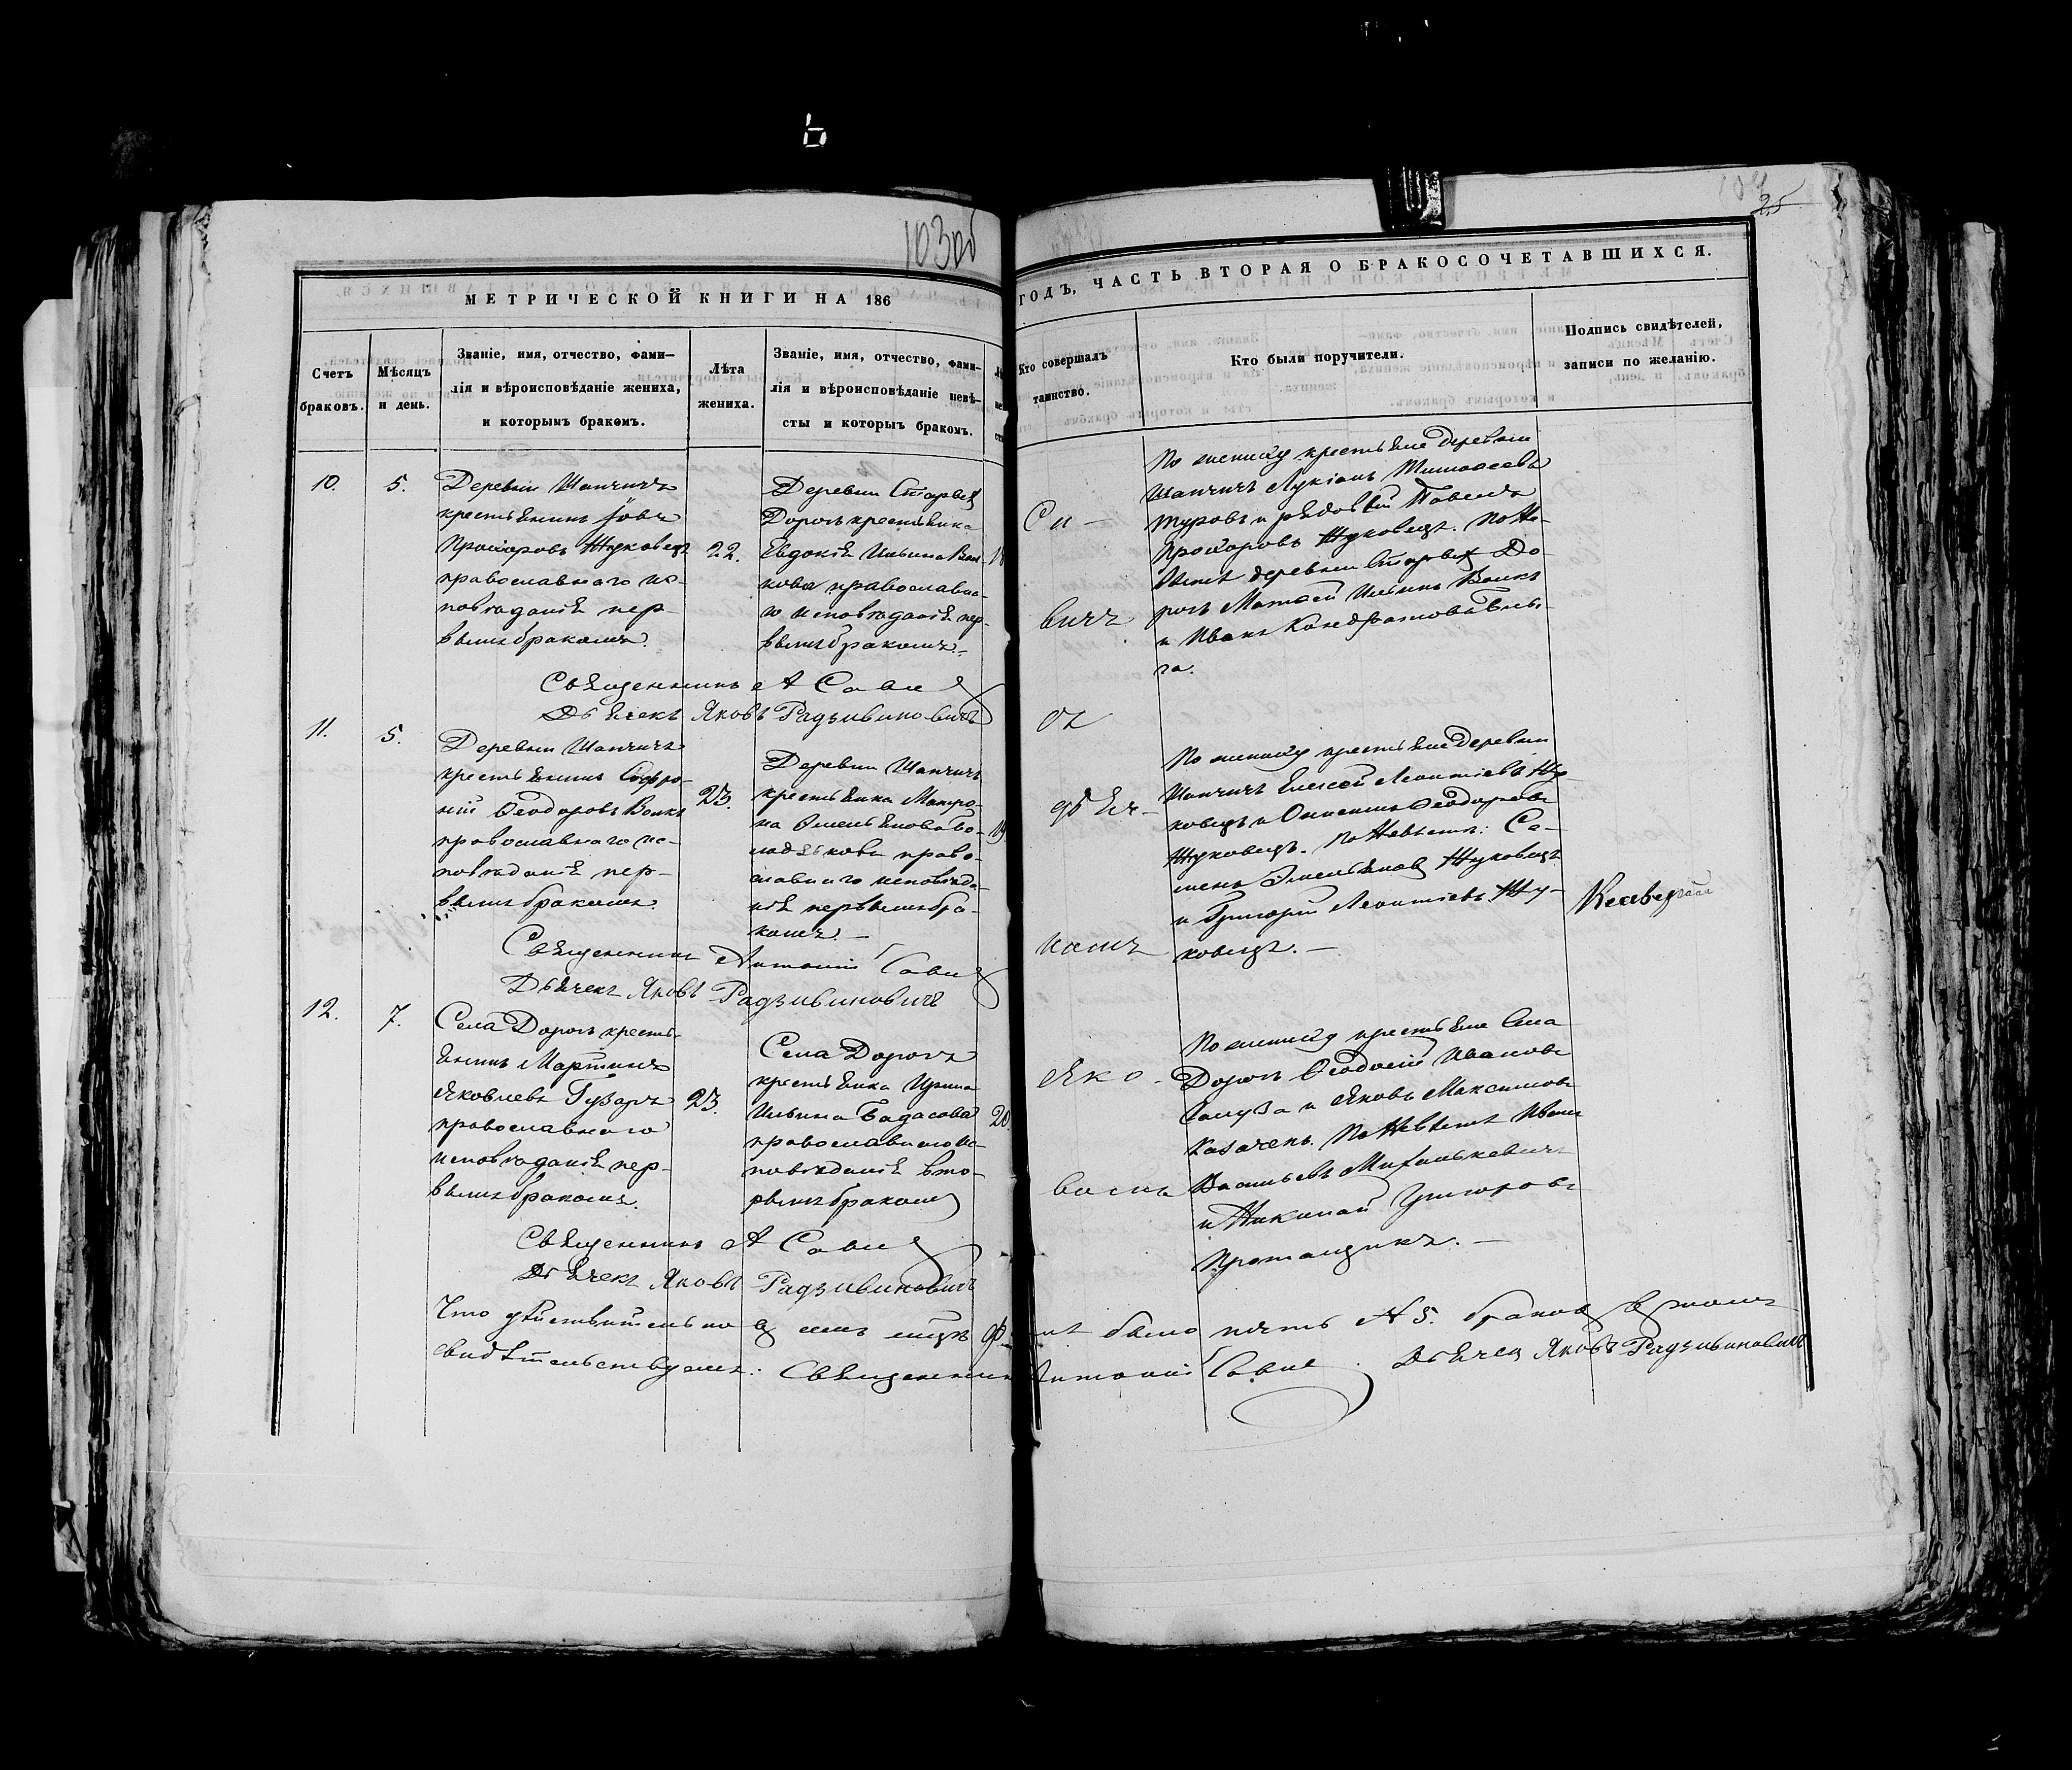 103об
25
МЕТРИЧЕСКОЙ КНИГИ НА 186
ГОДЪ, ЧАСТЬ ВТОРАЯ О БРАКОСОЧЕТАВШИХСЯ.
Счетъ
браковъ.
Мѣсяцъ
и день.
Званіе, имя, отчество, фами-
лія и вѣроисповѣданіе жениха,
и которымъ бракомъ.
Лѣта
жениха.
Званіе, имя, отчество, фами-
лія и вѣроисповѣданіе невѣ-
сты и которыъ бракомъ.
Кто совершалъ
таинство.
Кто были поручители.
Подпись свидѣтелей,
записи по желанію.
10.
5.
Деревни Шапчичъ
крестьянинъ Іовъ
Прохоровъ Жуковецъ
православнаго ис-
повѣданія пер-
вымъ бракомъ.
22.
Деревни Старыхъ
Дорогъ крестьянка
Евдокія Ильина Вол-
кова православна-
го исповѣданія пер-
вымъ бракомъ.
18
Си-
вичъ
По жениху крестьяне деревни
Шапчичъ Лукіанъ Тимоѳеевъ
и рядовый Павелъ
Прохоровъ Жуковецъ. По Не-
вѣстѣ деревни Старыхъ До-
рогъ Матѳей Ильинъ Волкъ
и Иванъ Кондратовъ
га.
Священникъ А Сави
Дьячекъ Яковъ Радзивиновичъ
11.
5.
Деревни Шапчичъ
крестьянинъ Софро-
ній Ѳеодоровъ Волкъ
православнаго ис-
повѣданія пер-
вымъ бракомъ.
23.
Деревни Шапчичъ
крестьянка Матро-
на Емельянова
православнаго исповѣда-
нія первымъ бра-
комъ.
19
дьяч-
комъ
По жениху крестьяне деревни
Шапчичъ Елисей Леонтіевъ Жу-
ковецъ и Ѳеодоровъ
Жуковецъ. По Невѣстѣ: Се-
менъ Емельяновъ Жуковецъ
и Григорій Леонтіевъ Жу-
ковецъ.
Священникъ Антоній Сави
Дьячекъ Яковъ Радзивиновичъ
12.
7.
Села Дорогъ кресть-
янинъ Мартинъ
Яковлевъ Гузаръ
православнаго
исповѣданія пер-
вымъ бракомъ.
23.
Села Дорогъ
крестьянка Ирина
Ильина Бадасова
православнаго ис-
повѣданія вто-
рымъ бракомъ
20.
Яко-
вомъ
По жениху крестьяне Села
Дорогъ Ѳеодосій Ивановъ
и Яковъ Максимовъ
Казачекъ. По Невѣстѣ Иванъ
Васильевъ Михалькевичъ
и Николай Григоровъ
Протащикъ.
Священникъ А Сави
Дьячекъ Яковъ Радзивиновичъ
Что дѣйствительно въ семъ было пять № 5. браковъ въ томъ
свидѣтельствуемъ: Священникъ Антоній Сави Дьячекъ Яковъ Радзивиновичъ